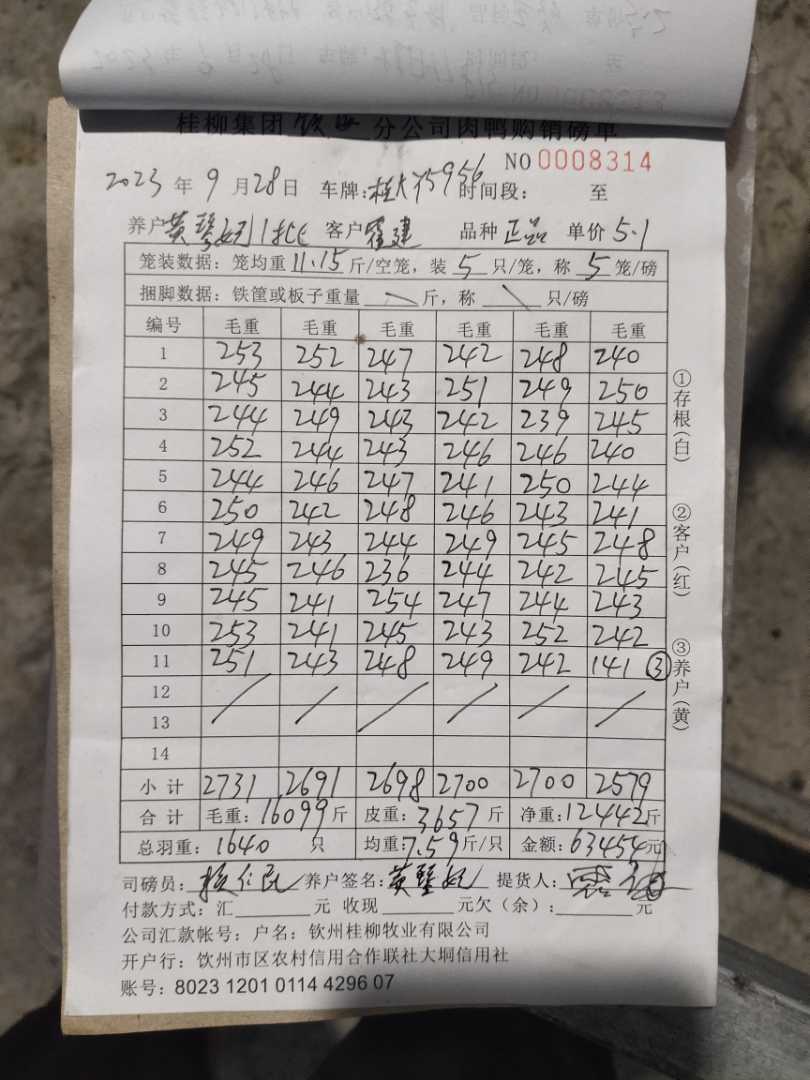 桂柳集团钦州分公司肉鸭购销磅单
NO 0008314
2023年9月28日 车牌: 时间段: 至
养户 客户 霍建 品种 正品 单价 5.1
笼装数据：笼均重11.15斤/空笼，装5只/笼，称5笼/磅
捆脚数据：铁筐或板子重量 斤，称 只/磅
编号 毛重 毛重 毛重 毛重 毛重 毛重
1 253 252 247 242 248 240
2 245 244 243 251 249 250
3 244 249 243 242 239 245
4 252 244 243 246 246 240
5 244 246 247 241 250 244
6 250 242 248 246 243 241
7 249 243 244 249 245 248
8 245 246 236 244 242 245
9 245 241 254 247 244 243
10 253 241 245 243 252 242
11 251 243 248 249 242 141 ③
12
13
14
小计 2731 2691 2698 2700 2700 2579
合计 毛重：16099斤 皮重：3657斤 净重：12442斤
总羽重：1640 只 均重：7.59斤/只 金额：63454元
司磅员： 养户签名： 提货人：
付款方式：汇 元 收现 元欠（余）： 元
公司汇款帐号：户名：钦州桂柳牧业有限公司
开户行：钦州市区农村信用合作联社大垌信用社
账号：8023 1201 0114 4296 07
①存根(白)
②客户(红)
③养户(黄)